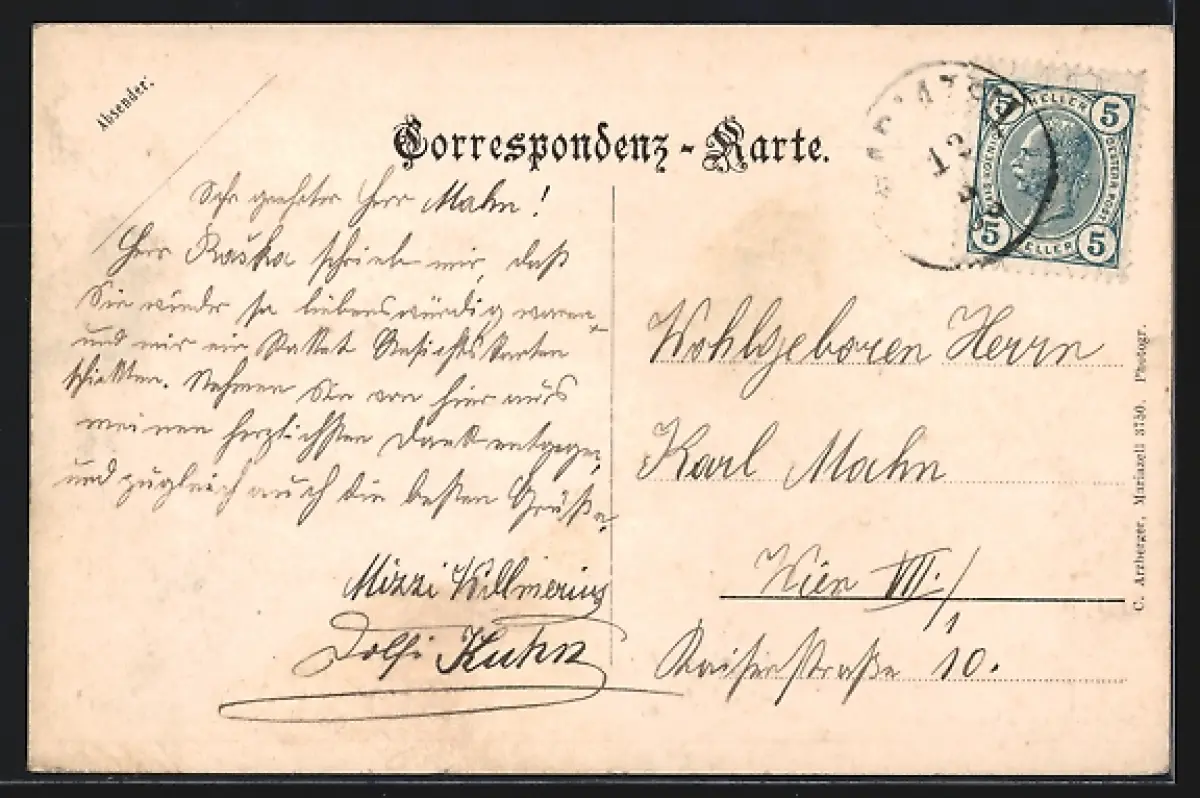 Absender:
Correspondenz-Karte.
Sehr geehrter Herr Mahn!
Herr Raška schrieb mir, daß
Sie wieder so liebenswürdig waren
und mir ein Packet Ansichtskarten
schickten. Nehmen Sie von hier aus
meinen herzlichsten Dank entgegen
und zugleich auch die besten Grüße,
Mizzi
Dolfi Kuhn
HELLER
5 5
5 5
HELLER
12
Wohlgeboren Herrn
Karl Mahn
Wien VII./1
Kaiserstraße 10.
C. Arzberger, Mariazell 3750. Photogr.